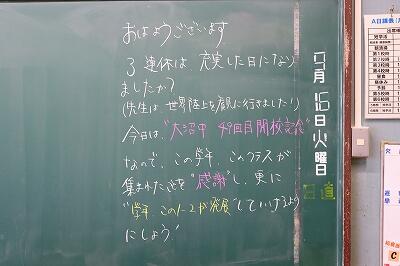 おはようございます
3連休は充実した日になり
ましたか?
(先生は世界陸上を観に行きました!)
今日は、"大沼中 49回目開校記念"
なので、この学年、このクラスが
集まれたことを"感謝"し、更に
"学年、この1-2が発展"していけるよう
にしよう"
9月16日火曜日
日直
A日課表